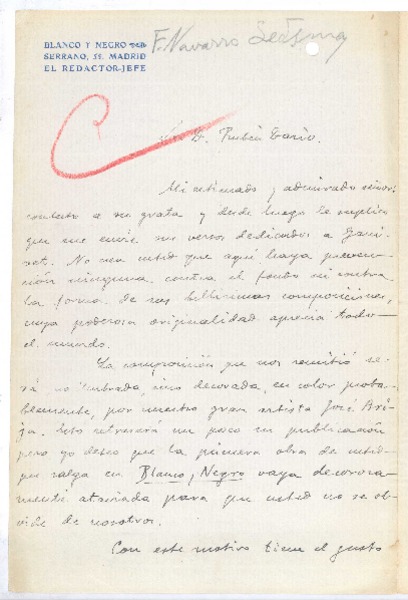 BLANCO Y NEGRO
SERRANO, 55. MADRID
EL REDACTOR-JEFE
F. Navarro Ledesma
Sr. D. Rubén Darío.
Mi estimado y admirado señor:
contesto a su grata y desde luego le suplico
que me envíe sus versos dedicados a Gavi-
net. No crea usted que aquí haya preven-
ción ninguna contra el fondo ni contra
la forma de sus bellísimas composiciones,
cuya poderosa originalidad aprecia todo
el mundo.
La composición que nos remitió se-
rá no timbrada, sino decorada, en color proba-
blemente, por nuestro gran artista José Arija.
Esto retrasará un poco su publicación
pero yo deseo que la primera obra de usted
que salga en Blanco y Negro vaya decorosa-
mente ataviada para que usted no se ol-
vide de nosotros.
Con este motivo tiene el gusto